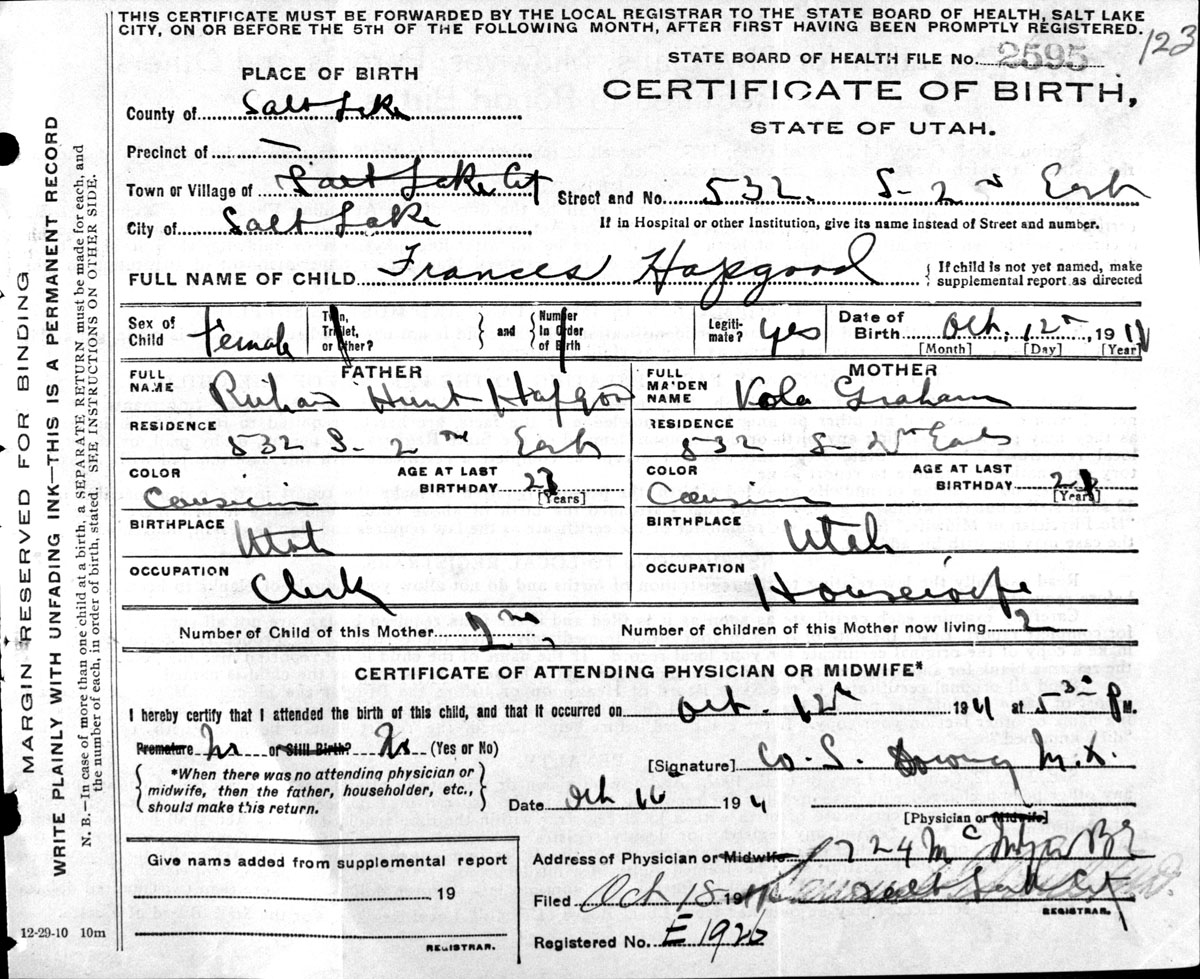 THIS CERTIFICATE MUST BE FORWARDED BY THE LOCAL REGISTRAR TO THE STATE BOARD OF HEALTH, SALT LAKE
CITY, ON OR BEFORE THE 5TH OF THE FOLLOWING MONTH, AFTER FIRST HAVING BEEN PROMPTLY REGISTERED.
123
STATE BOARD OF HEALTH FILE No. 2595
PLACE OF BIRTH
CERTIFICATE OF BIRTH,
STATE OF UTAH.
County of Salt Lake
Precinct of —
Town or Village of Salt Lake City
Street and No. 532. S-2nd East
City of Salt Lake
If in Hospital or other Institution, give its name instead of Street and number.
FULL NAME OF CHILD Frances Hapgood
{ If child is not yet named, make
supplemental report as directed
Sex of Child Female
Twin, Triplet, or other?
} and {
Number In Order of Birth
Legiti-mate? Yes
Date of Birth Oct. 12th, 1911
[Month] [Day] [Year]
FATHER
MOTHER
FULL NAME Hunt Hapgood
FULL MAIDEN NAME Graham
RESIDENCE 532 S- 2nd East
RESIDENCE 532 S- 2nd East
COLOR
AGE AT LAST BIRTHDAY
[Years]
COLOR
AGE AT LAST BIRTHDAY
[Years]
BIRTHPLACE Utah
BIRTHPLACE Utah
OCCUPATION Clerk
OCCUPATION Housewife
Number of Child of this Mother 2nd
Number of children of this Mother now living 2
CERTIFICATE OF ATTENDING PHYSICIAN OR MIDWIFE*
I hereby certify that I attended the birth of this child, and that it occurred on Oct. 12th 1911 at 5 30 P M.
Premature No or Still Birth? No (Yes or No)
{ *When there was no attending physician or
midwife, then the father, householder, etc.,
should make this return. }
[Signature] M.D.
Date Oct 16 1911
[Physician or Midwife]
Give name added from supplemental report
19
REGISTRAR.
Address of Physician or Midwife 724
Salt Lake City
Filed Oct 18 191
REGISTRAR.
Registered No. E 1926
12-29-10 10m
MARGIN RESERVED FOR BINDING
WRITE PLAINLY WITH UNFADING INK—THIS IS A PERMANENT RECORD
N. B.—In case of more than one child at a birth, a SEPARATE RETURN must be made for each, and
the number of each, in order of birth, stated. SEE INSTRUCTIONS ON OTHER SIDE.